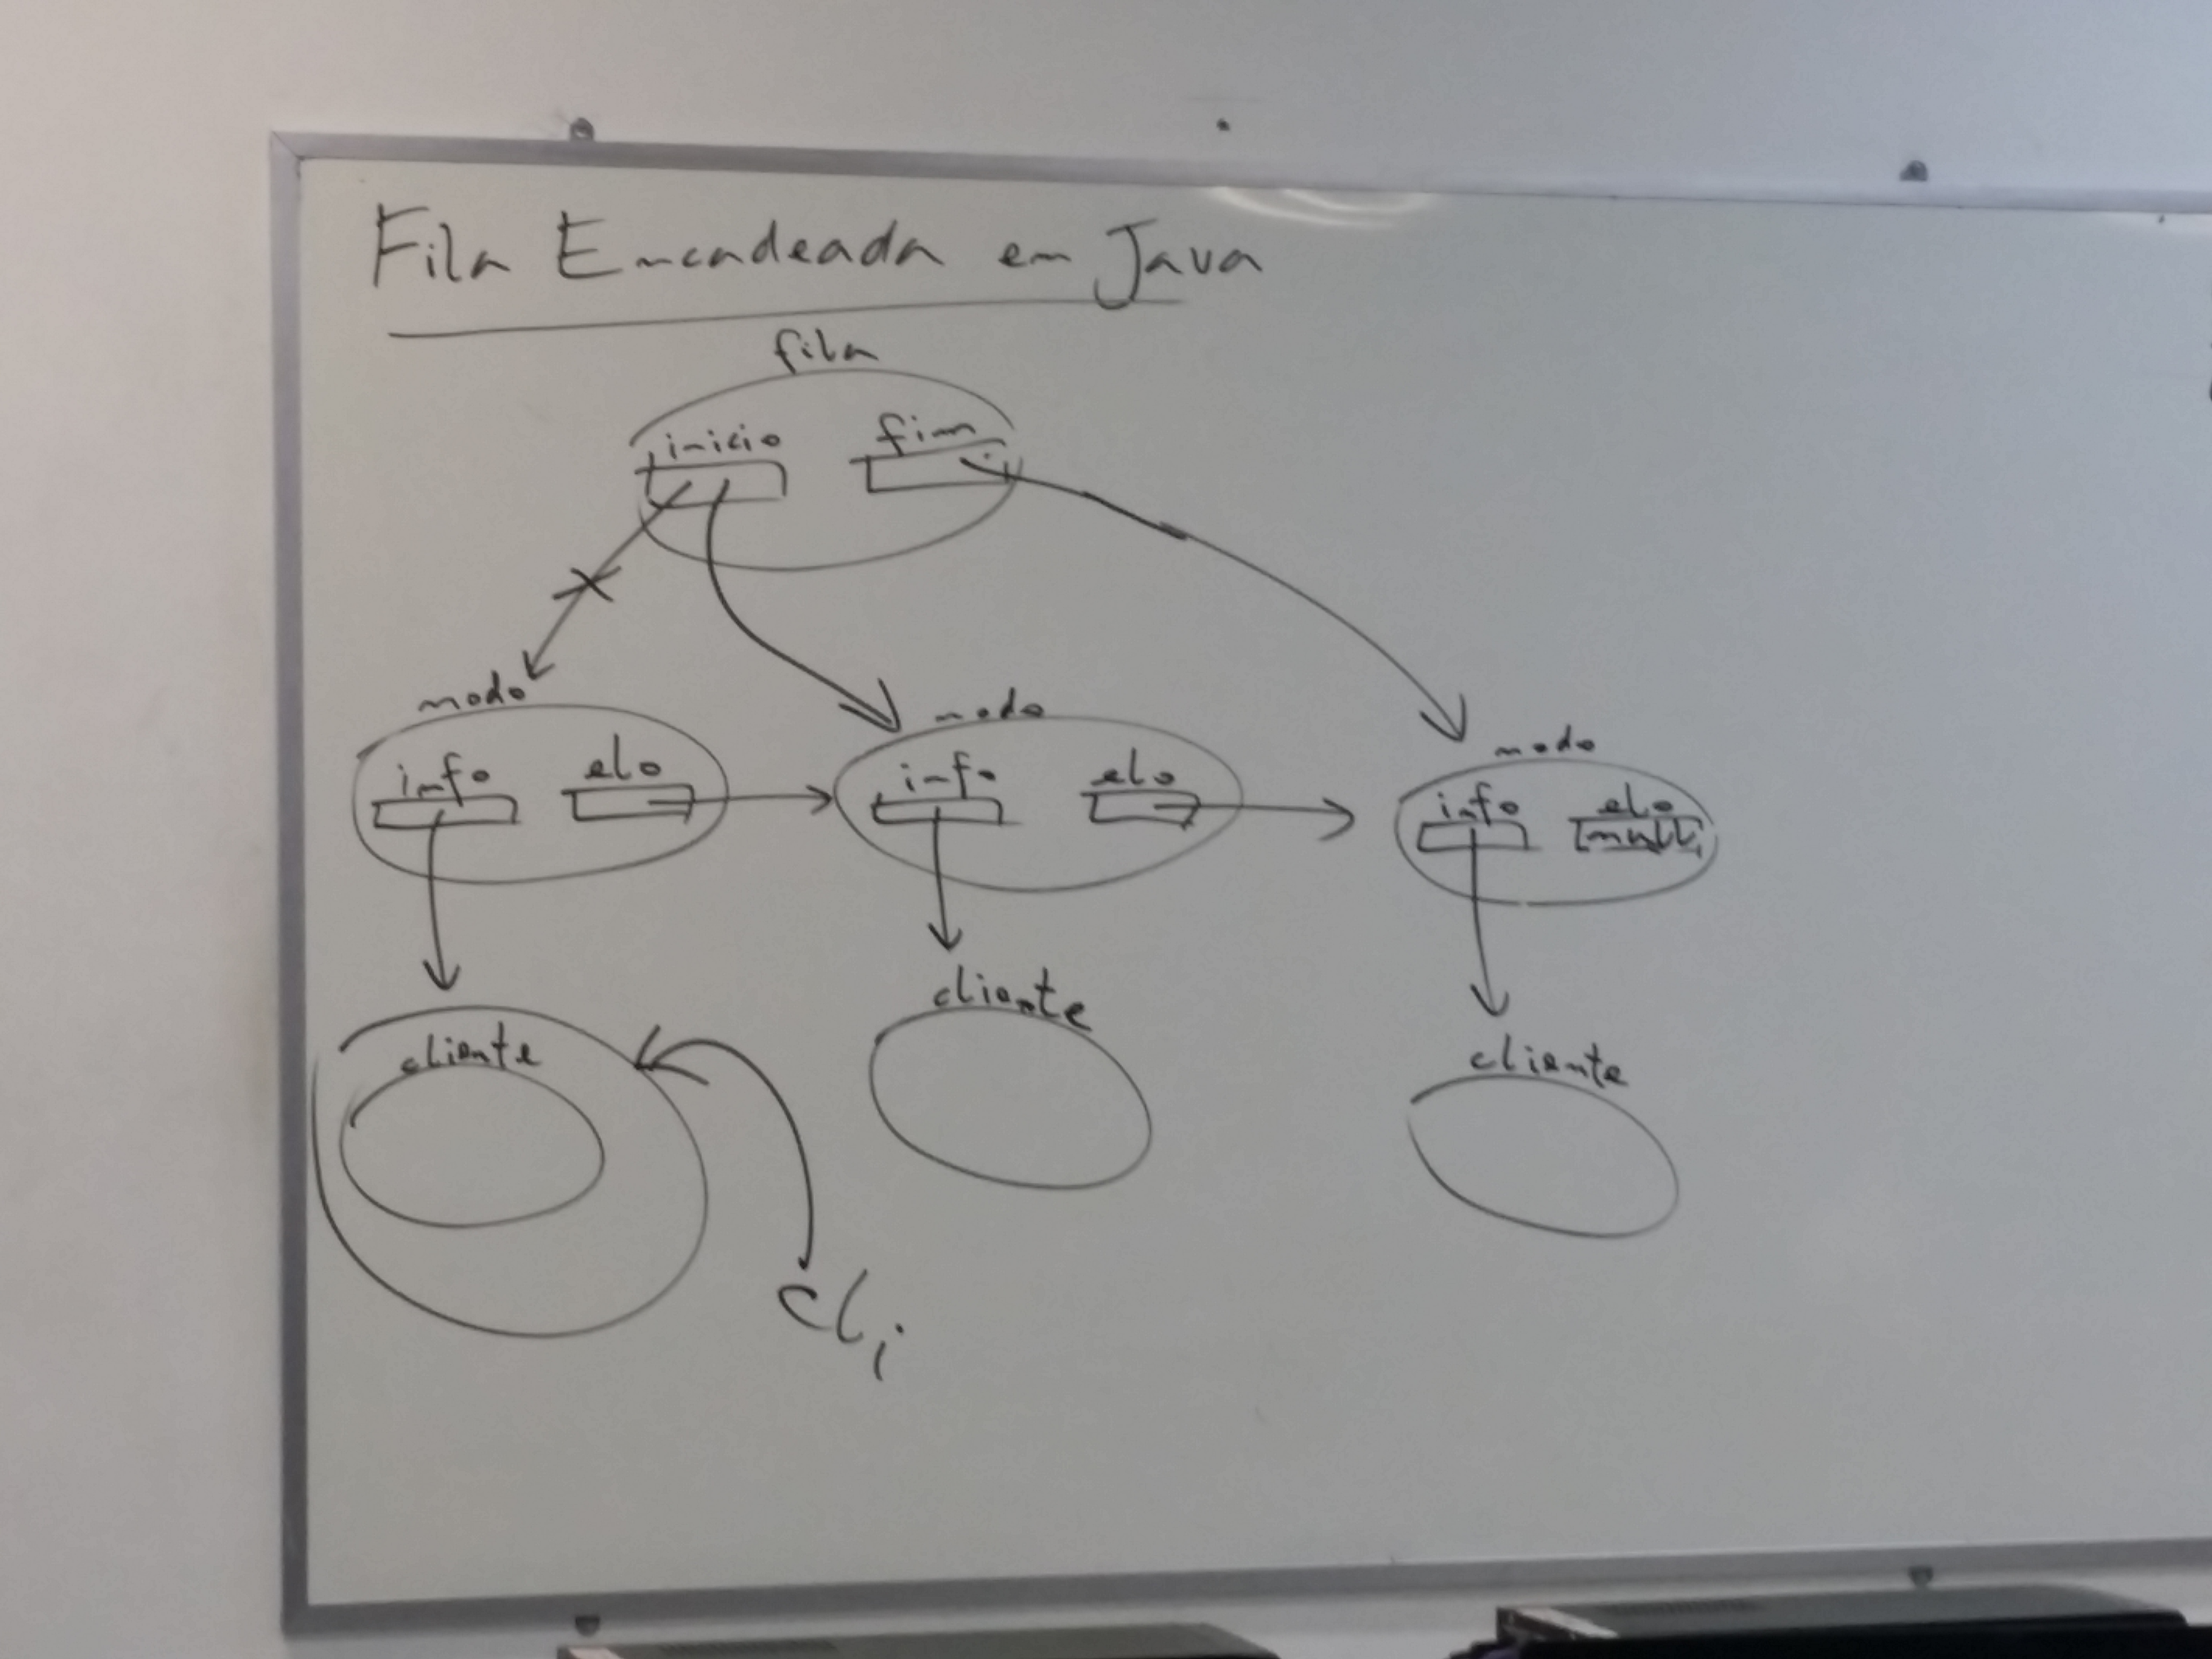 Fila Encadeada em Java
fila
inicio fim
nodo nodo nodo
info elo info elo info elo
null
cliente cliente cliente
cli